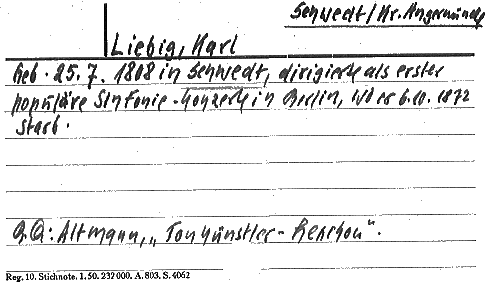 Schwedt/Kr. Angermünde
Liebig, Karl
Geb. 25. 7. 1808 in Schwedt, dirigierte als erster
populäre Sinfonie-Konzerte in Berlin, wo er 6.10. 1872
starb.
Q: Altmann, „Tonkünstler-Lexikon".
Reg. 10. Stichnote. 1. 50. 232 000. A. 803. S. 4062